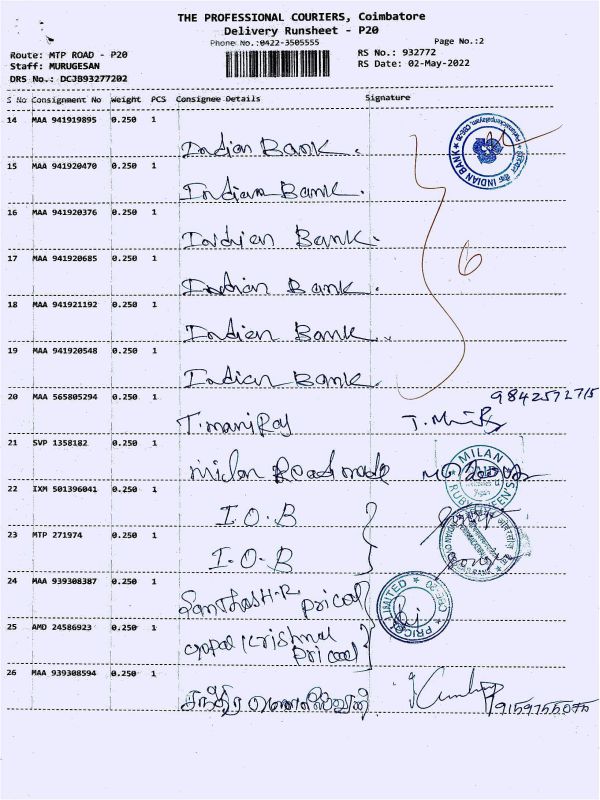 THE PROFESSIONAL COURIERS, Coimbatore
Delivery Runsheet - P20
Phone No.:0422-3505555
Page No.:2
Route: MTP ROAD - P20
RS No.: 932772
Staff: MURUGESAN
RS Date: 02-May-2022
DRS No.: DCJB93277202
S No Consignment No Weight PCS Consignee Details Signature
14 MAA 941919895 0.250 1
Indian Bank.
INDIAN BANK
15 MAA 941920470 0.250 1
Indian Bank.
16 MAA 941920376 0.250 1
Indian Bank.
17 MAA 941920685 0.250 1
6
Indian Bank.
18 MAA 941921192 0.250 1
Indian Bank.
19 MAA 941920548 0.250 1
Indian Bank.
20 MAA 565805294 0.250 1
9842572715
T.maniRaj
21 SVP 1358182 0.250 1
Milan Readmade
MILAN
22 IXM 501396041 0.250 1
I.O.B
23 MTP 271974 0.250 1
I.O.B
24 MAA 939308387 0.250 1
SanthosH.R pricol
PRICOL LIMITED
25 AMD 24586923 0.250 1
Gopal Krishnal
pricol
26 MAA 939308594 0.250 1
9159755075